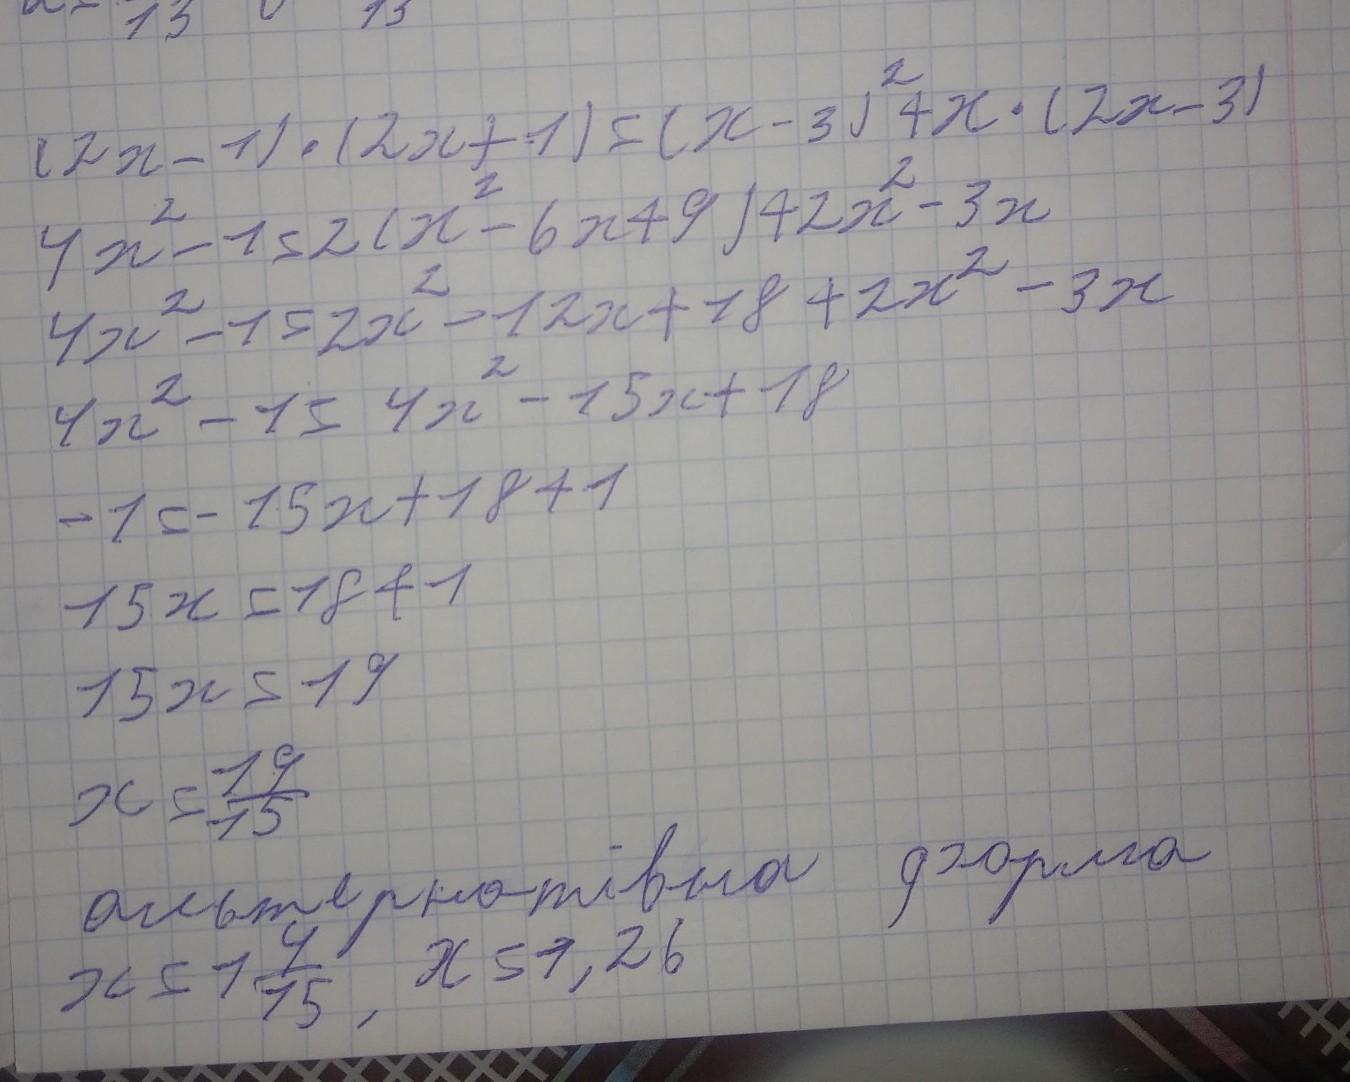 13 13
(2x-1)·(2x+1)=(x-3)²+x·(2x-3)
4x²-1=2(x²-6x+9)+2x²-3x
4x²-1=2x²-12x+18+2x²-3x
4x²-1=4x²-15x+18
-1=-15x+18+1
15x=18+1
15x=19
x=19/15
альтернативна форма
x=1 4/15, x=1,26